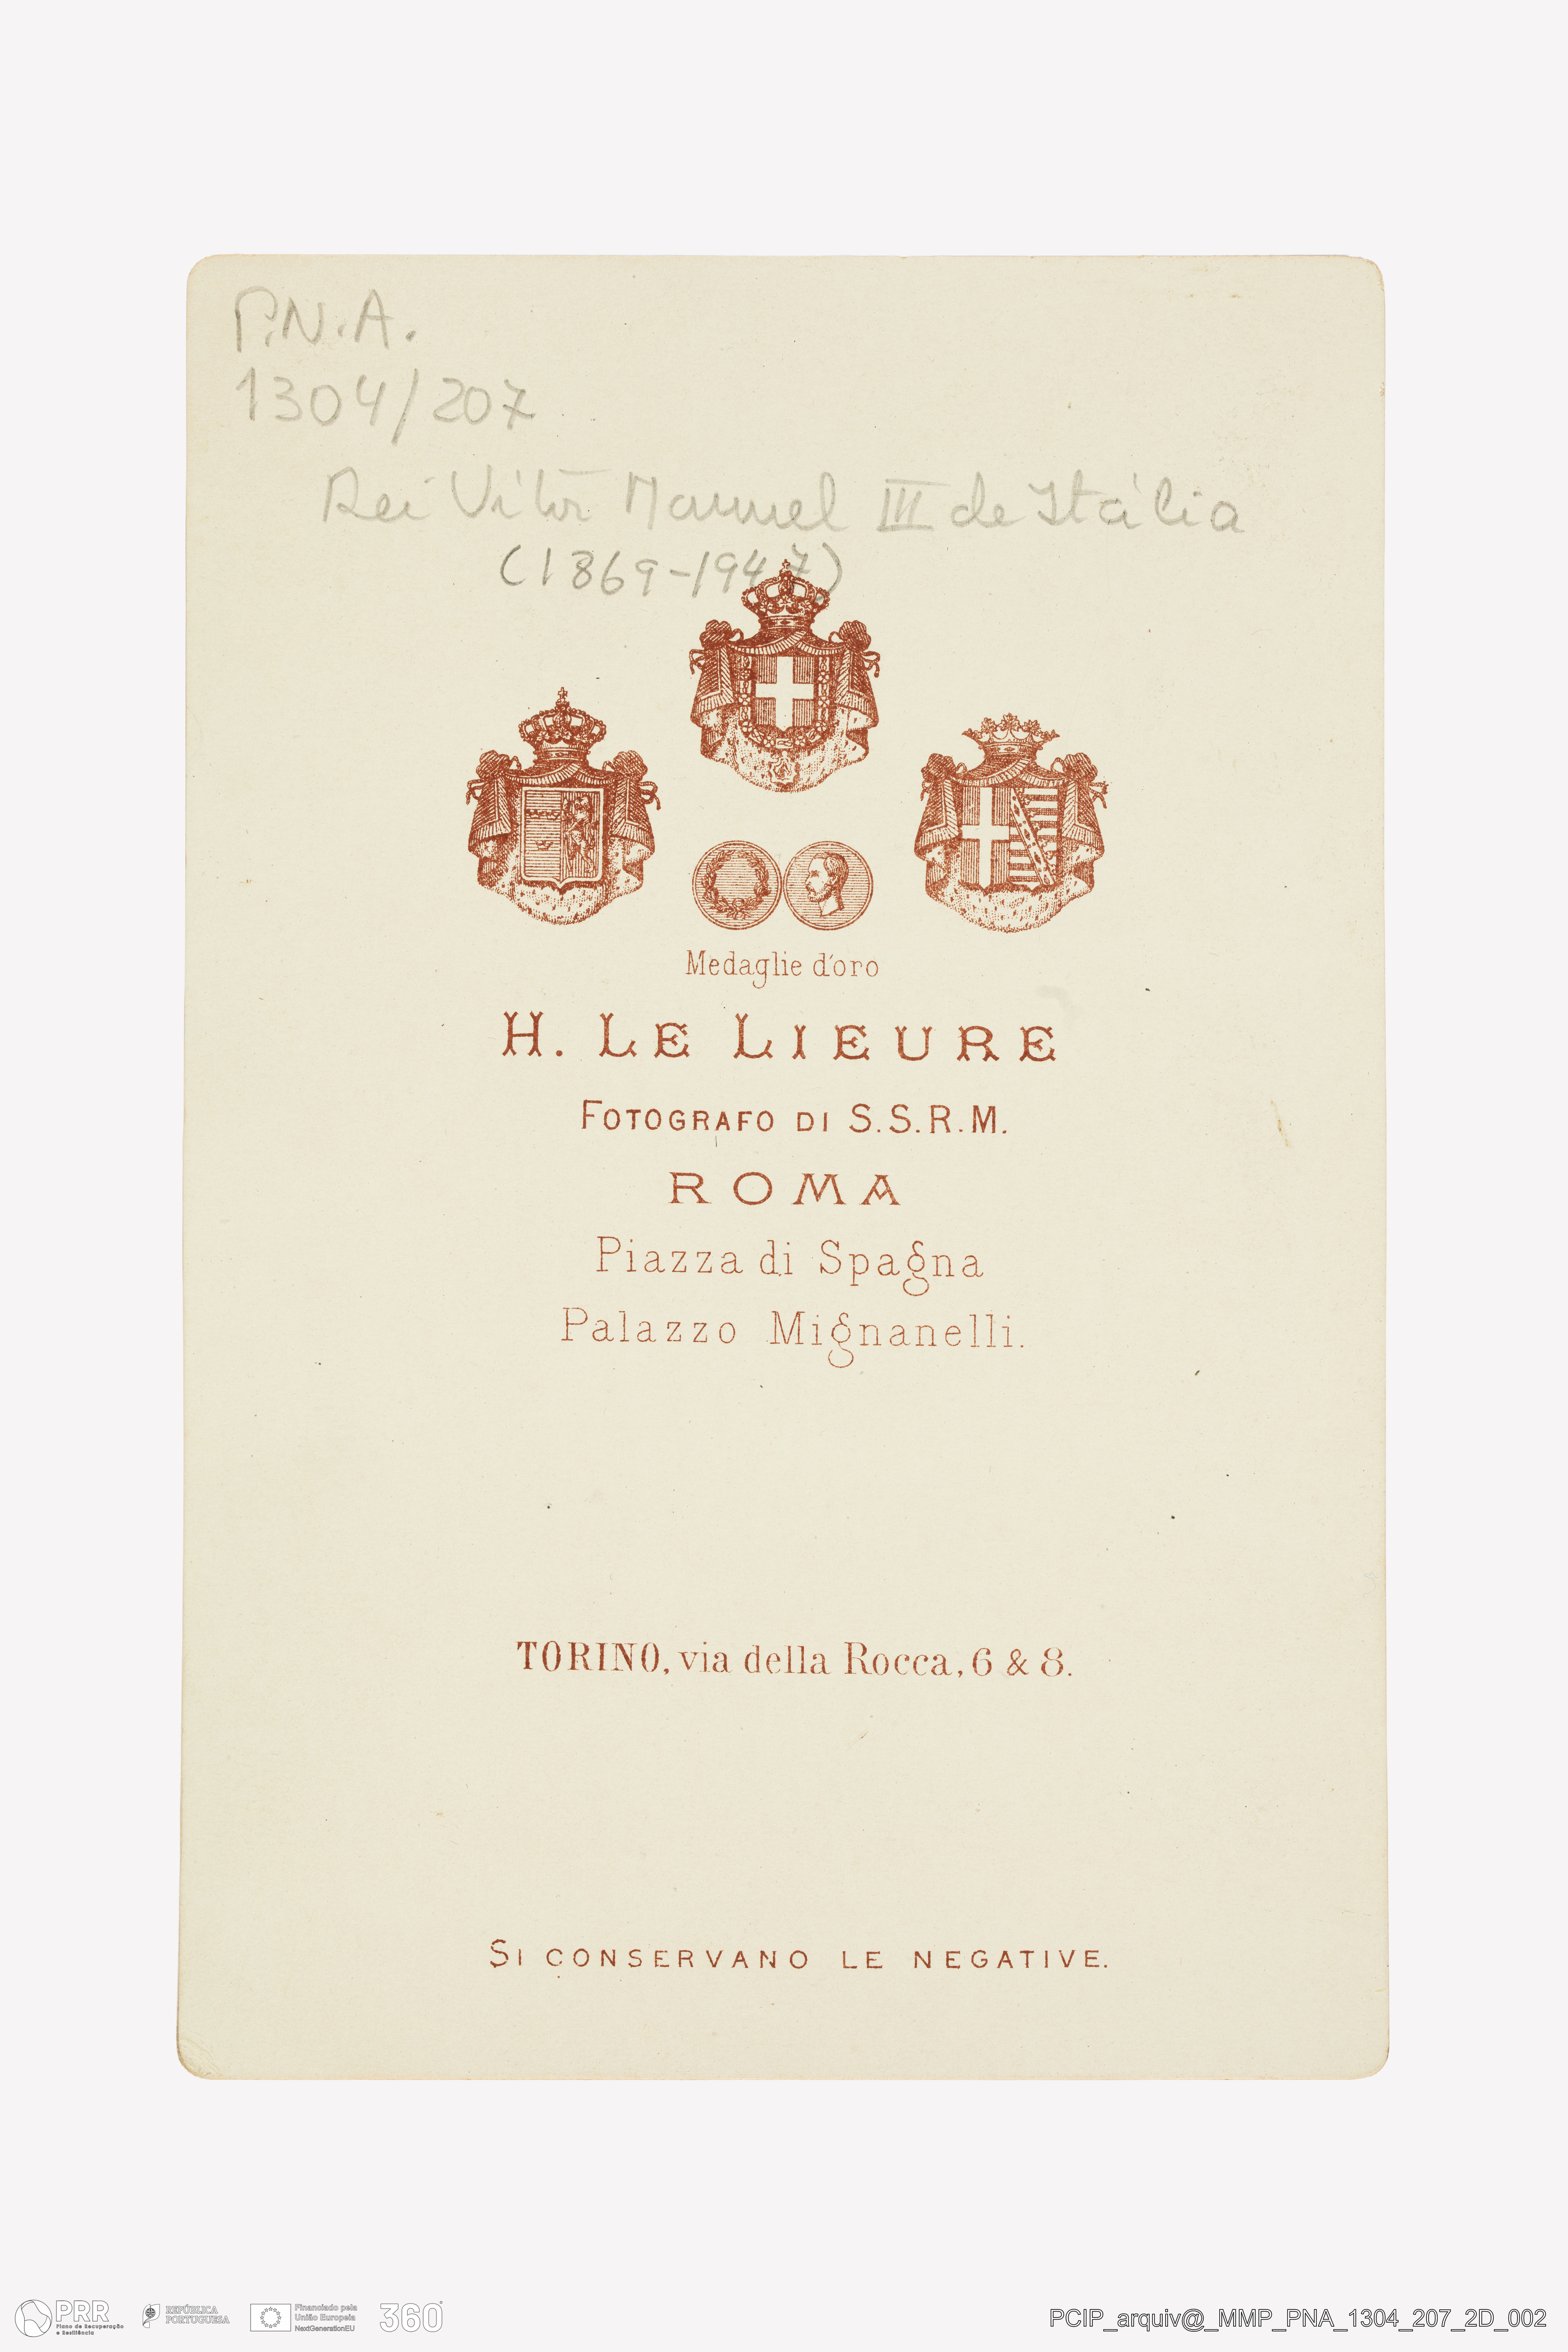 P.N.A.
1304/207
Rei Vítor Manuel III de Itália
(1869-1947)
Medaglie d'oro
H. LE LIEURE
FOTOGRAFO DI S.S.R.M.
ROMA
Piazza di Spagna
Palazzo Mignanelli.
TORINO, via della Rocca, 6 & 8.
SI CONSERVANO LE NEGATIVE.
PRR
Plano de Recuperação
e Resiliência
REPÚBLICA
PORTUGUESA
Financiado pela
União Europeia
NextGenerationEU
360°
PCIP_arquiv@_MMP_PNA_1304_207_2D_002